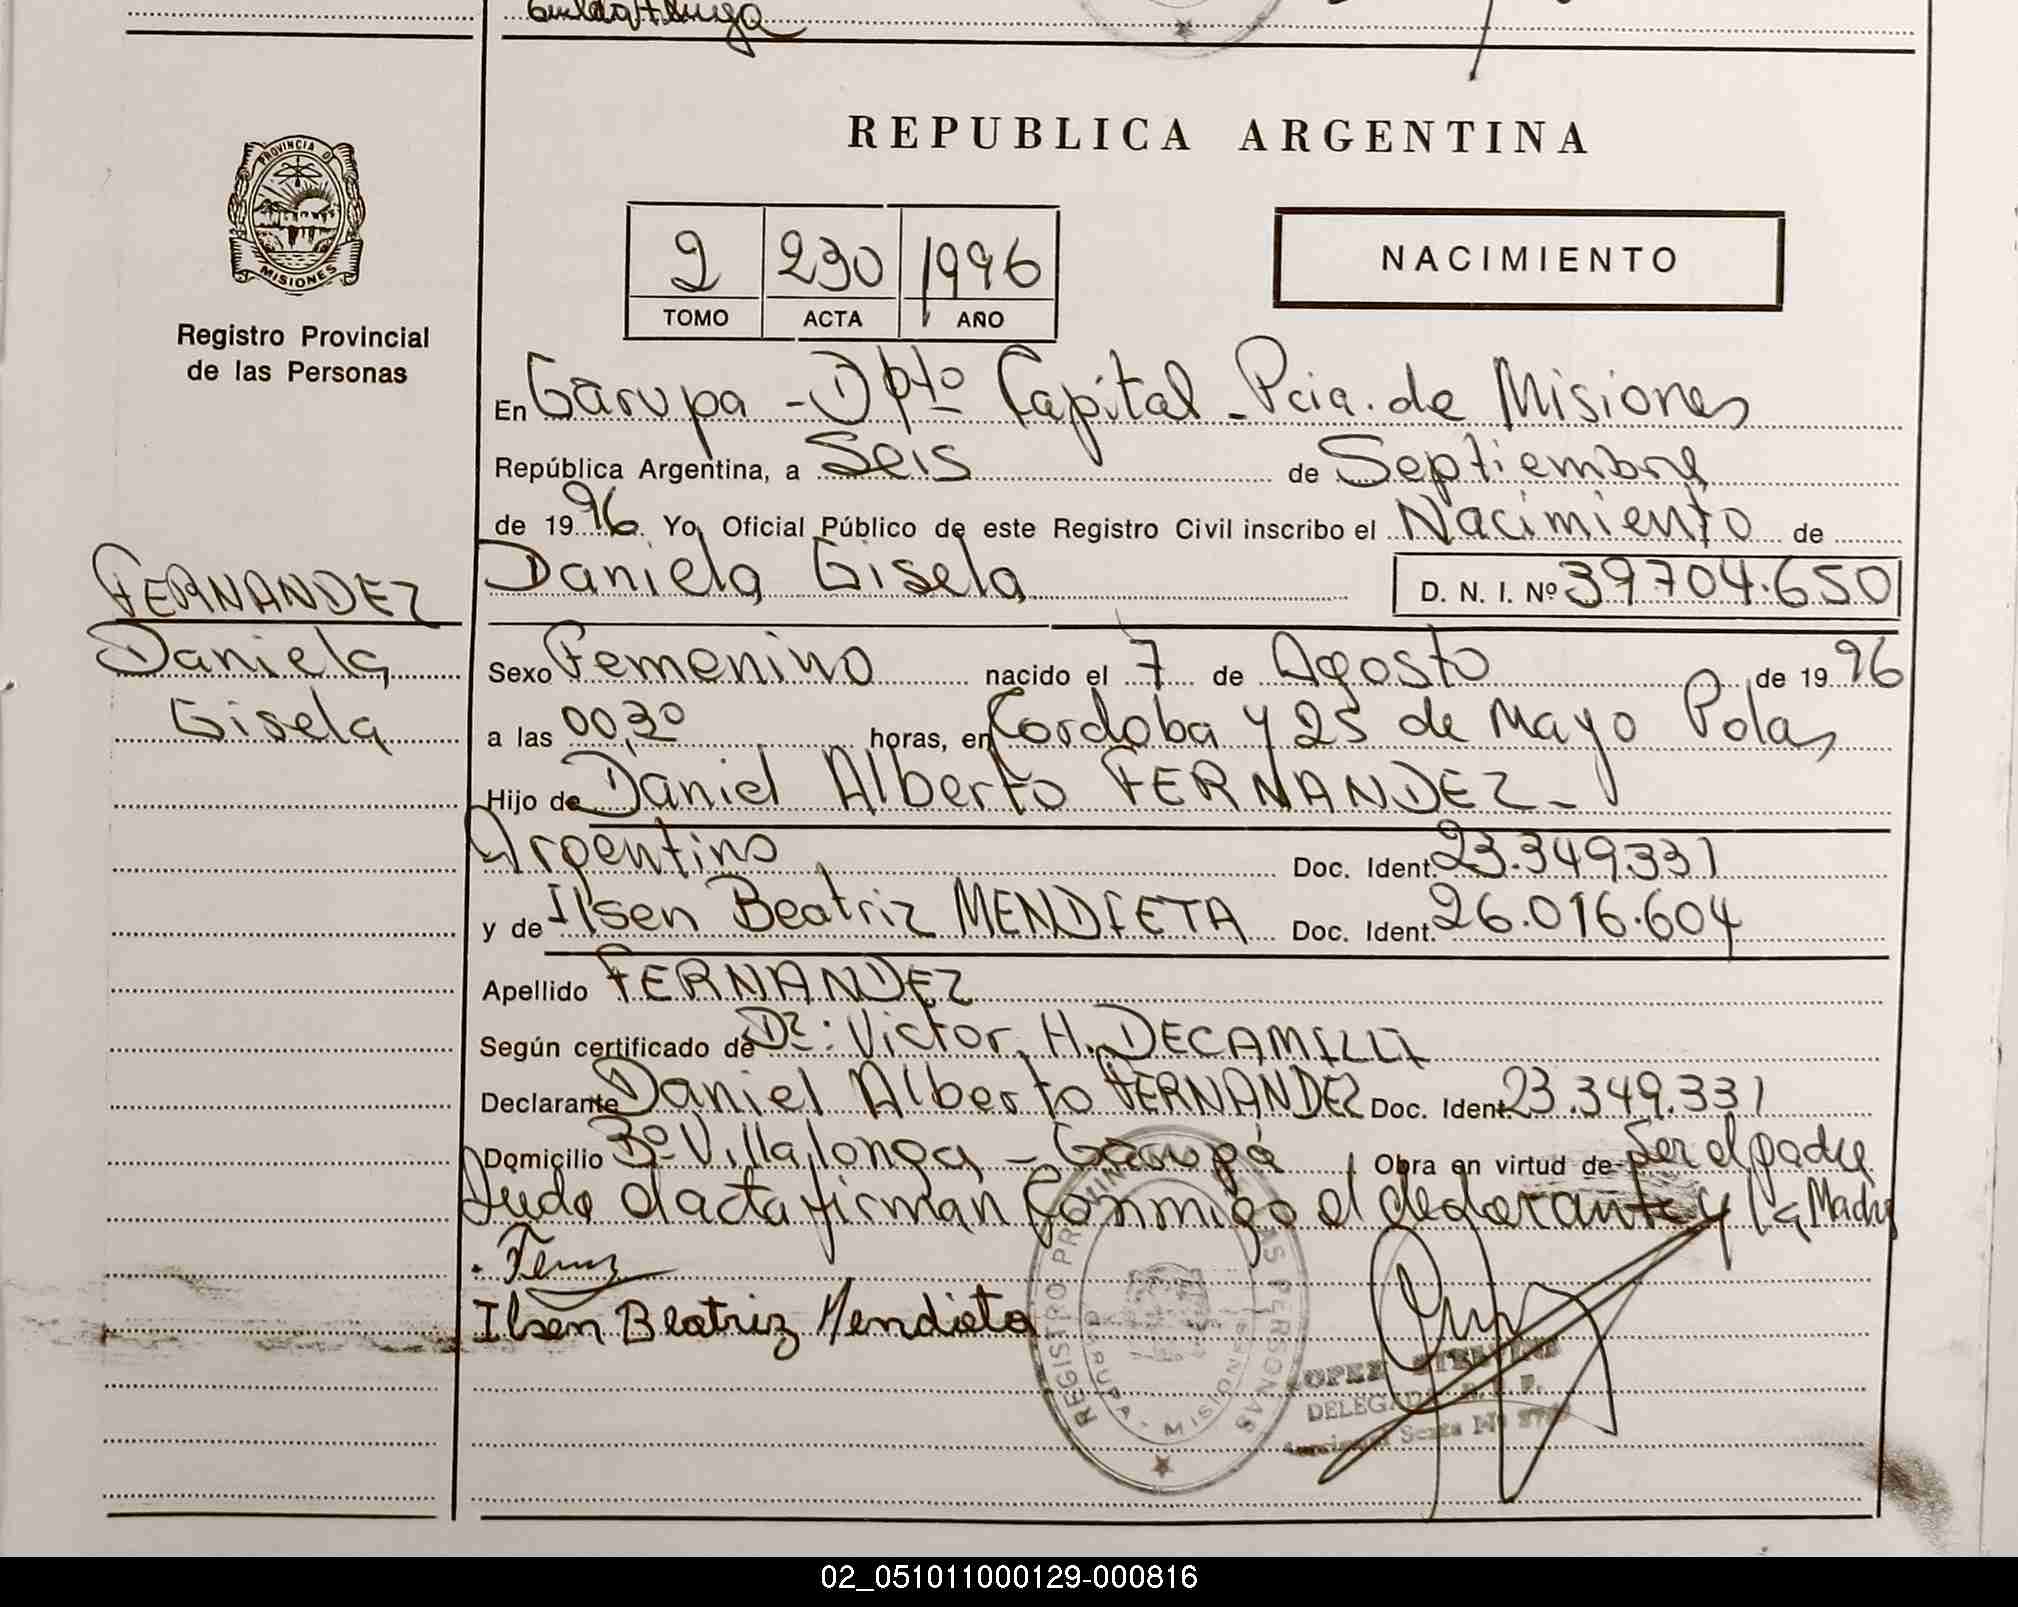 PROVINCIA D
MISIONES
Registro Provincial
de las Personas
FERNANDEZ
Daniela
Gisela
REPUBLICA ARGENTINA
2 230 1996
TOMO ACTA AÑO
NACIMIENTO
En Garupa - Dpto Capital - Pcia. de Misiones
República Argentina, a Seis de Septiembre
de 1996. Yo, Oficial Público de este Registro Civil inscribo el Nacimiento de
Daniela Gisela D. N. I. Nº 39704.650
Sexo Femenino nacido el 7 de Agosto de 1996
a las 00,30 horas, en Cordoba y 25 de Mayo Pdas
Hijo de Daniel Alberto FERNANDEZ -
Argentino Doc. Ident. 23.349.331
y de Ilsen Beatriz MENDIETA Doc. Ident. 26.016.604
Apellido FERNANDEZ
Según certificado de Dr: Victor H. DECAMILLI
Declarante Daniel Alberto FERNANDEZ Doc. Ident. 23.349.331
Domicilio Bº Villalonga - Garupá Obra en virtud de Ser el padre
el acta firman Conmigo el declarante y la Madre
Ilsen Beatriz Mendieta
REGISTRO PROVIN AS PERSONAS
GARUPA - MISIONES
OPEZ
DELEGADA
02_051011000129-000816